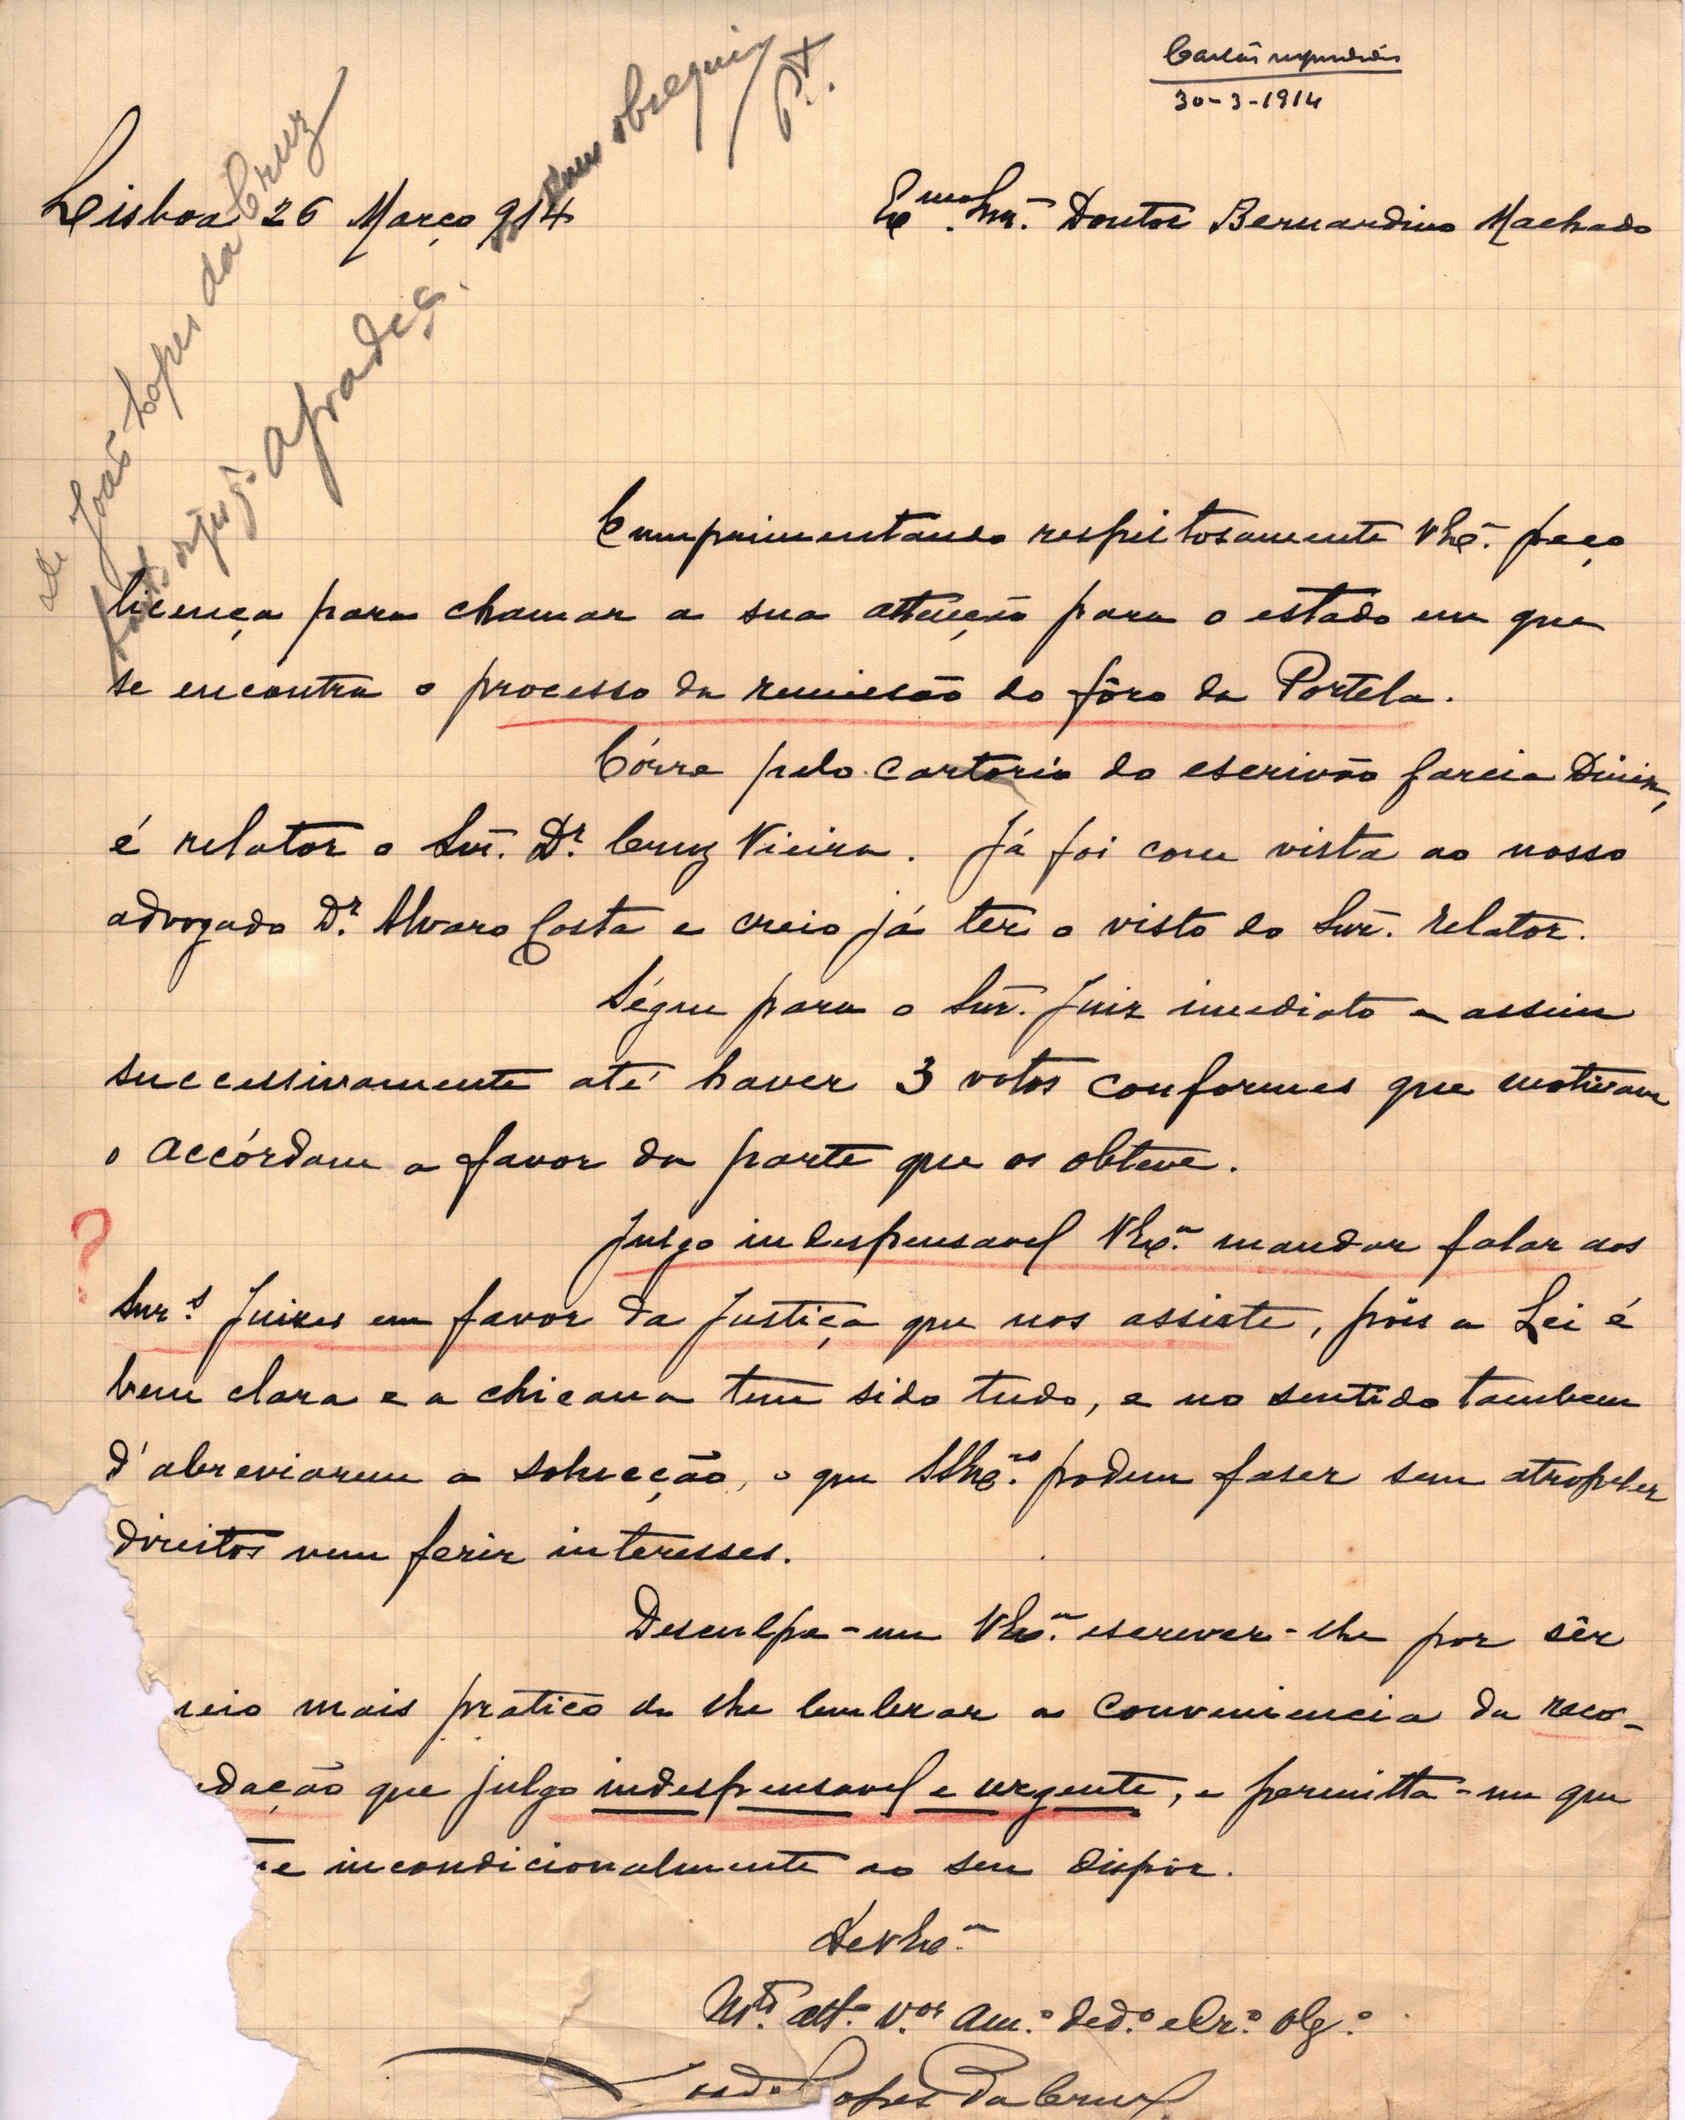 30-3-1914
Lisboa 26 Março 914
Exmo. Snr. Doutor Bernardino Machado
de João Lopes da Cruz
Cumprimentando respeitosamente V Exª. peço
licença para chamar a sua attenção para o estado em que
se encontra o processo da remissão do fôro da Portela.
Córre pelo cartorio do escrivão Garcia Diniz,
é relator o Snr. Dr. Cruz Vieira. Já foi com vista ao nosso
advogado Dr. Alvaro Costa e creio já ter o visto do Snr. relator.
Ségue para o Snr. Juiz imediato e assim
successivamente até haver 3 votos conformes que motivam
o accórdam a favor da parte que os obteve.
?
Julgo indespensavel V Exª. mandar falar aos
Snrs. Juizes em favor da justiça que nos assiste, pois a Lei é
bem clara e a chicana tem sido tudo, e no sentido tambem
d'abreviarem a solucção, o que SS Exas. podem faser sem atropeler
direitos nem ferir interesses.
Desculpe-me V Exª. escrever-lhe por sêr
meio mais pratico de lhe lembrar a conveniencia da reco-
dação que julgo indespensavel e urgente, e permitta-me que
te incondicionalmente ao seu dispôr.
De V Exª.
Mto. attº. V.or Am.º Ded.º e Cr.º Obg.º
João Lopes da Cruz